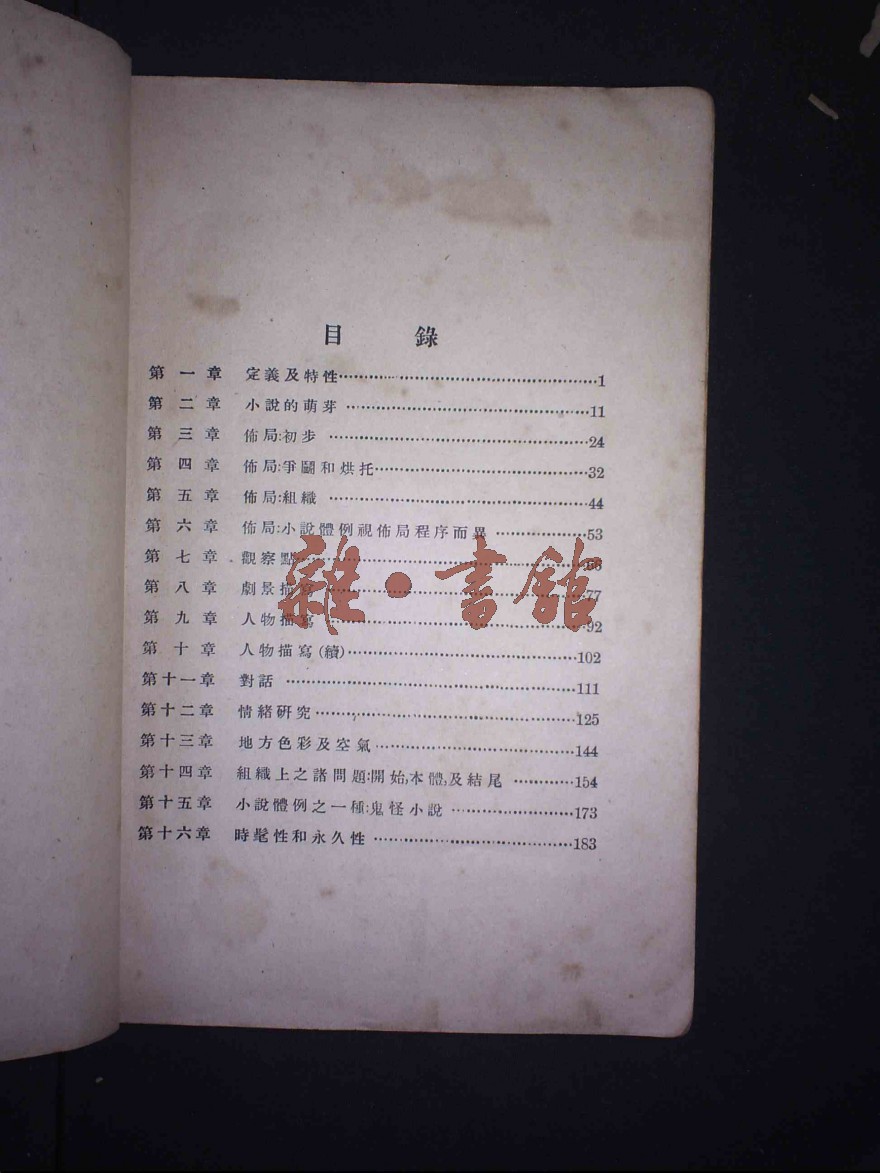 目錄
第一章 定義及特性……1
第二章 小說的萌芽……11
第三章 佈局:初步……24
第四章 佈局:爭鬭和烘托……32
第五章 佈局:組織……44
第六章 佈局:小說體例視佈局程序而異……53
第七章 觀察點……66
第八章 劇景描寫……77
第九章 人物描寫……92
第十章 人物描寫(續)……102
第十一章 對話……111
第十二章 情緒研究……125
第十三章 地方色彩及空氣……144
第十四章 組織上之諸問題:開始,本體,及結尾……154
第十五章 小說體例之一種:鬼怪小說……173
第十六章 時髦性和永久性……183
雜·書館